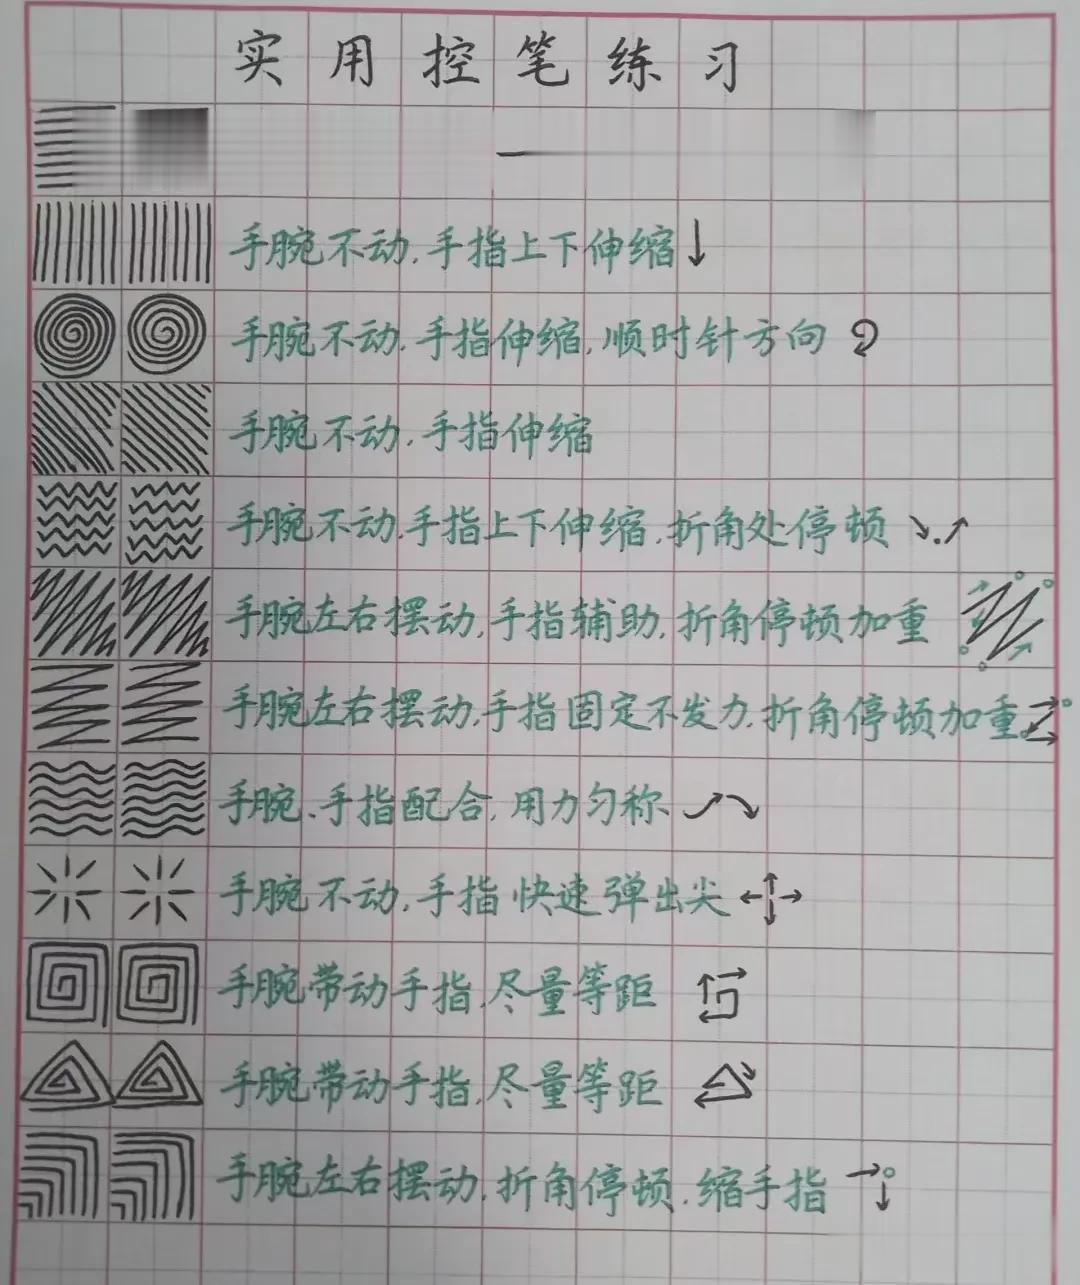 实用控笔练习
手腕不动.手指上下伸缩
手腕不动.手指伸缩.顺时针方向
手腕不动.手指伸缩
手腕不动.手指上下伸缩.折角处停顿
手腕左右摆动.手指辅助.折角停顿加重
手腕左右摆动.手指固定不发力.折角停顿加重
手腕、手指配合.用力匀称
手腕不动.手指快速弹出尖
手腕带动手指.尽量等距
手腕带动手指.尽量等距
手腕左右摆动.折角停顿.缩手指